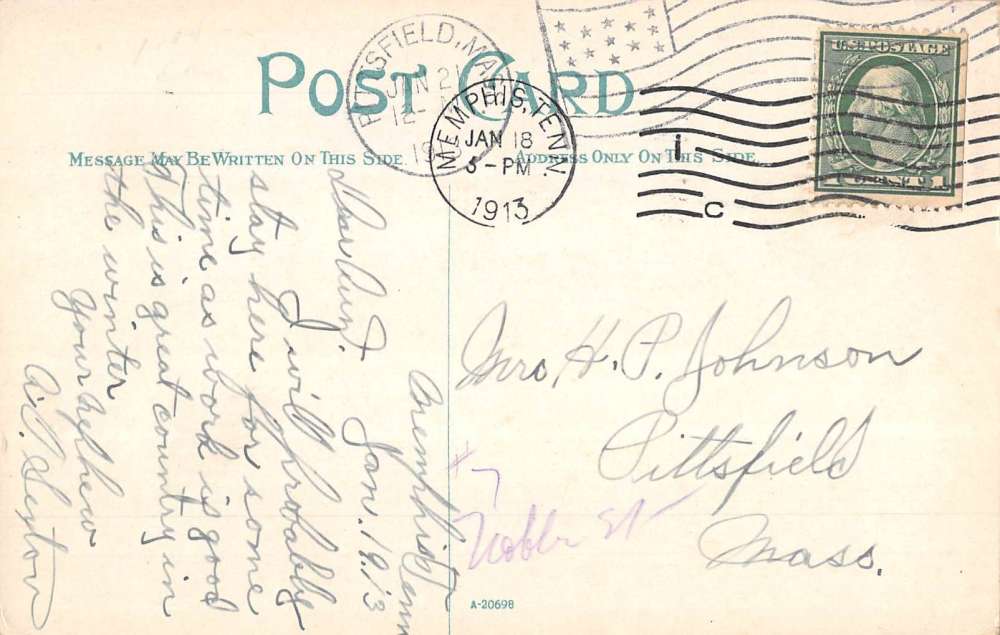 POST CARD
MESSAGE MAY BE WRITTEN ON THIS SIDE.
ADDRESS ONLY ON THIS SIDE
PITTSFIELD, MA
JAN 21
12
MEMPHIS, TENN.
JAN 18
5-PM
1913
1
C
U.S. POSTAGE
1 CENT 1
Memphis Tenn
Jan. 19.13
Dear Aunt.
I will probably
stay here for some
time as work is good
This is great country in
the winter
Your nephew
A. P. Sexton
Mrs. H. P. Johnson
Pittsfield
Mass.
#7
Noble St
A-20698